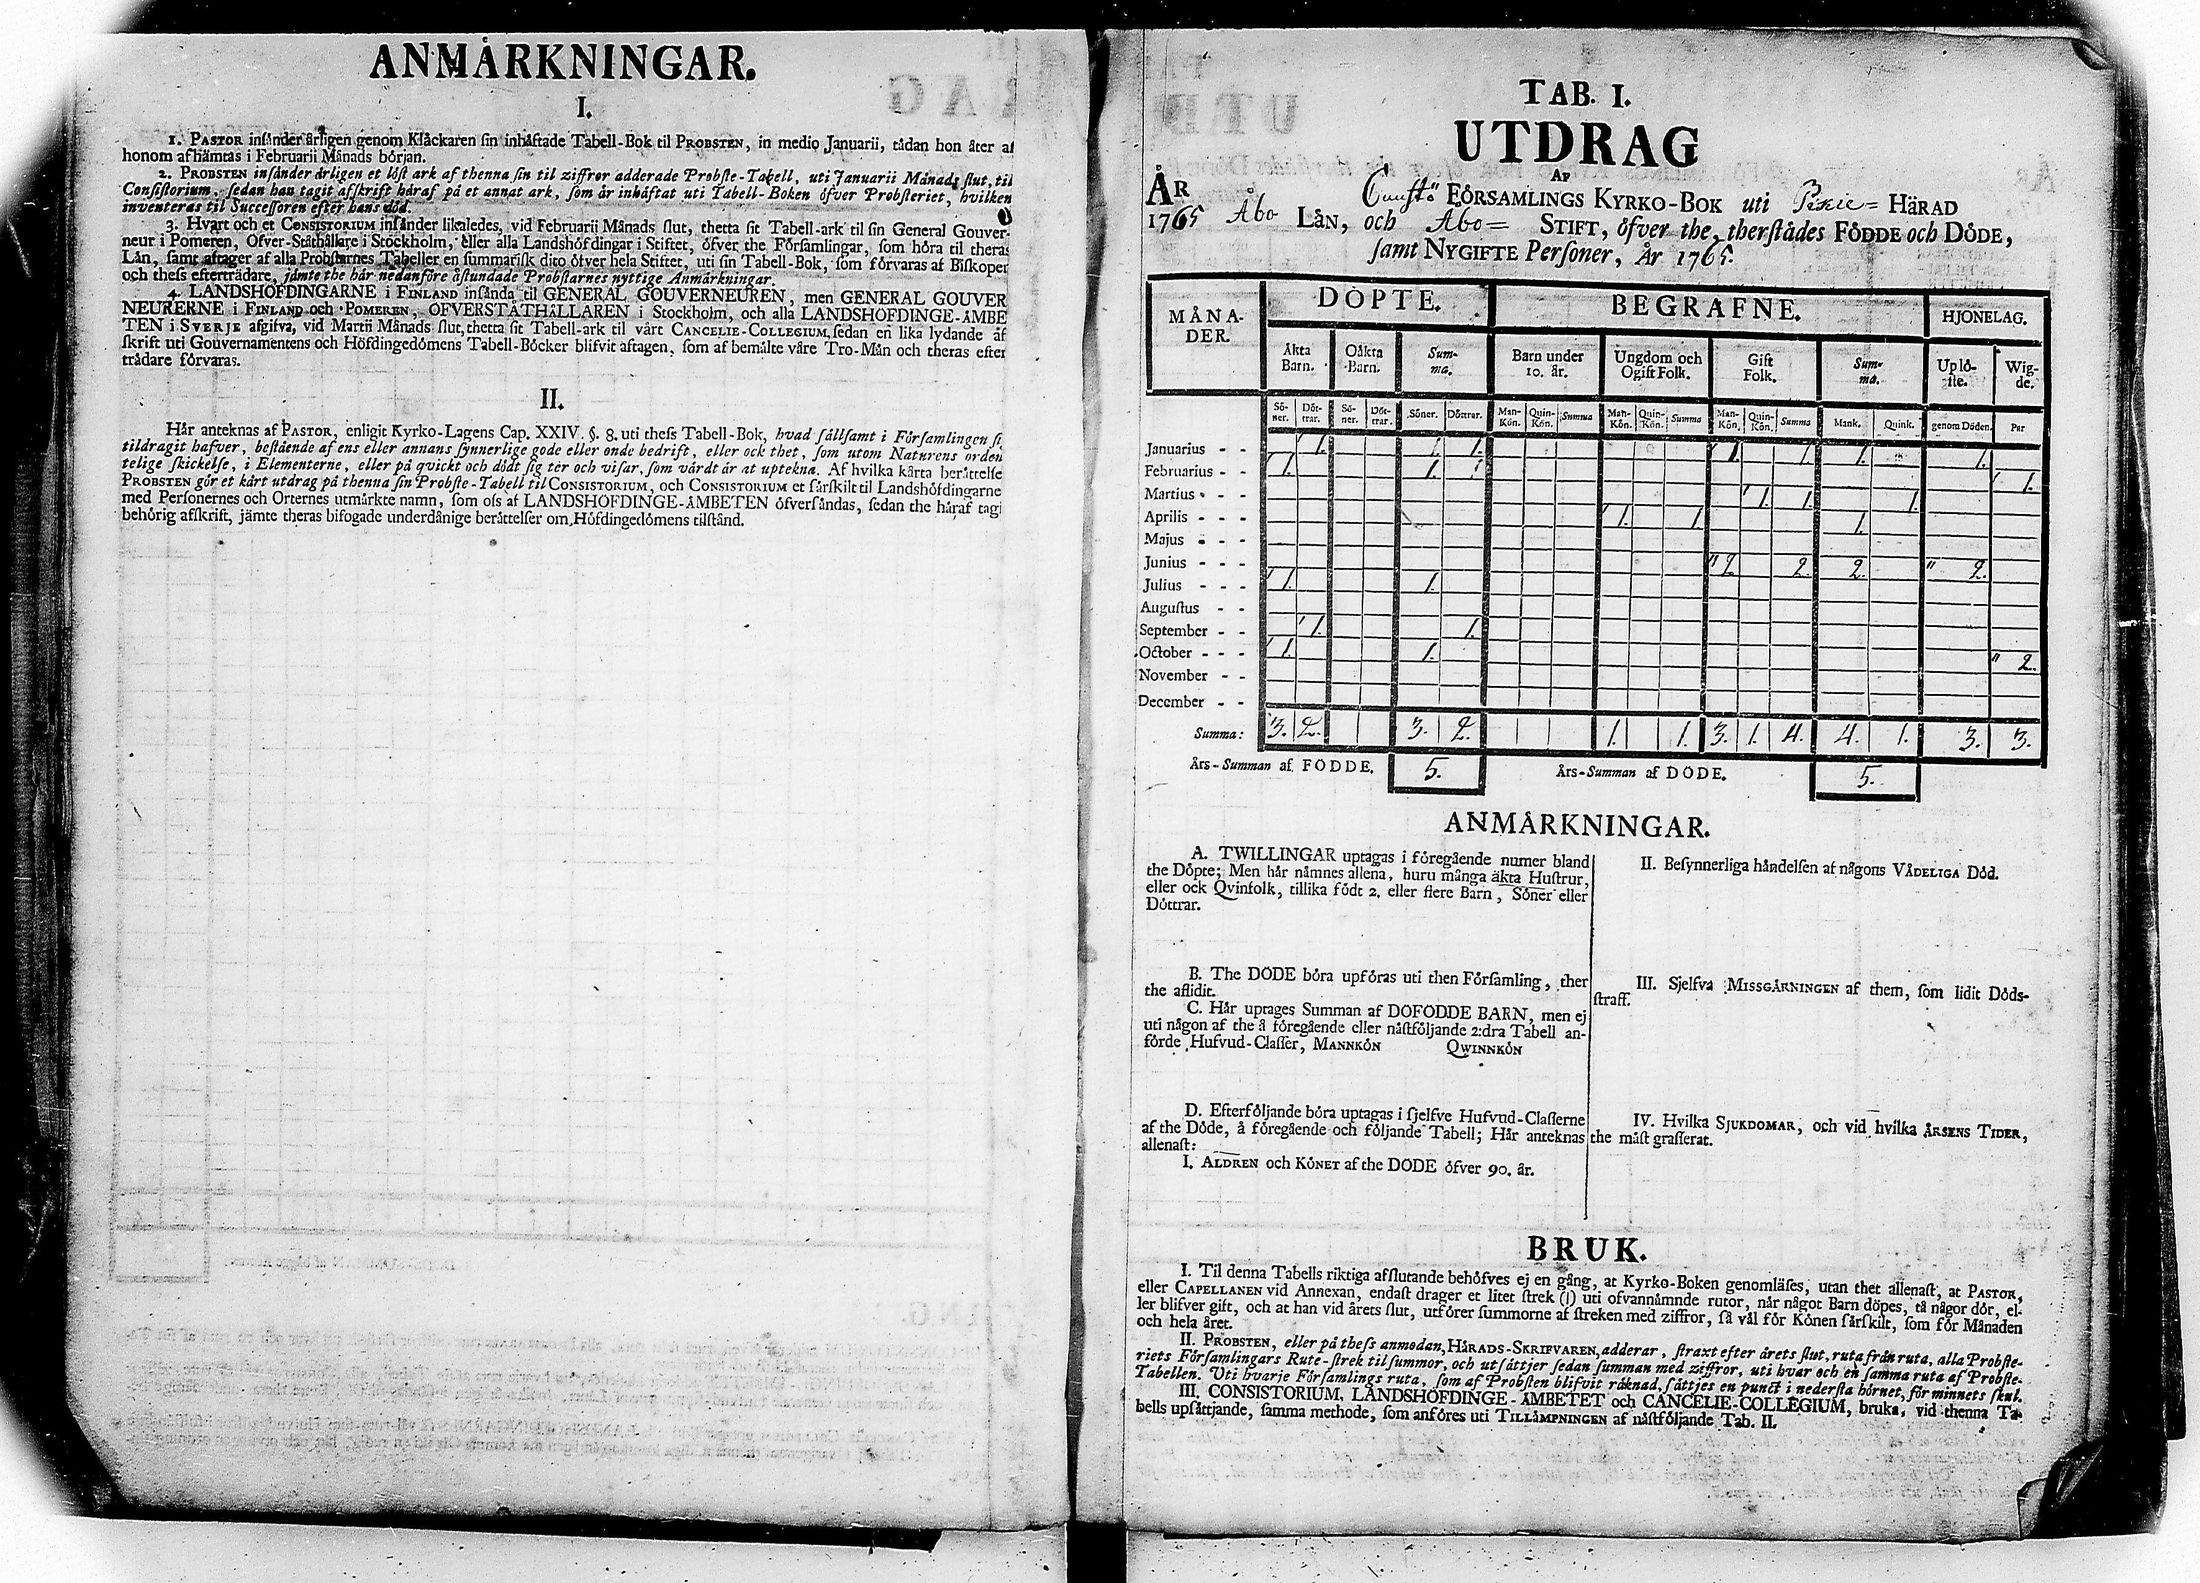 ANMÅRKNINGAR.
I.
1. PASTOR insånder årligen genom Klåckaren sin inhåftade Tabell-Bok til PROBSTEN, in medio Januarii, tådan hon åter af
honom afhämtas i Februarii Månads början.
2. PROBSTEN insånder årligen et löst ark af thenna sin til ziffror adderade Probste-Tabell, uti Januarii Månads slut, til
Consistorium, sedan han tagit afskrift håraf på et annat ark, som år inhåftat uti Tabell-Boken öfver Probsteriet, hvilken
inventeras til Successoren efter hans död.
3. Hvart och et CONSISTORIUM insånder likaledes, vid Februarii Månads slut, thetta sit Tabell-ark til sin General Gouver-
neur i Pomeren, Öfver-Ståthållare i Stockholm, eller alla Landshöfdingar i Stiftet, öfver the Församlingar, som höra til theras
Lån, samt aftager af alla Probstarnes Tabeller en summarisk dito öfver hela Stiftet, uti sin Tabell-Bok, som förvaras af Biskopen
och thess efterträdare, jämte the hår nedanföre åstundade Probstarnes nyttige Anmärkningar.
4. LANDSHÖFDINGARNE i FINLAND insånda til GENERAL GOUVERNEUREN, men GENERAL GOUVER
NEURERNE i FINLAND och POMEREN, ÖFVERSTÅTHÅLLAREN i Stockholm, och alla LANDSHÖFDINGE-ÅMBE
TEN i SVERJE afgifva, vid Martii Månads slut, thetta sit Tabell-ark til vårt CANCELIE-COLLEGIUM, sedan en lika lydande af
skrift uti Gouvernamentens och Höfdingedömens Tabell-Böcker blifvit aftagen, som af bemälte våre Tro-Mån och theras efter
trådare förvaras.
II.
Hår anteknas af PASTOR, enligit Kyrko-Lagens Cap. XXIV. §. 8. uti thess Tabell-Bok, hvad sållsamt i Församlingen si
tildragit hafver, bestående af ens eller annans synnerlige gode eller onde bedrift, eller ock thet, som utom Naturens orden
telige skickelse, i Elementerne, eller på qvickt och dödt sig ter och visar, som vårdt år at uptekna. Af hvilka kårta beråttelse
PROBSTEN gör et kårt utdrag på thenna sin Probste-Tabell til CONSISTORIUM, och CONSISTORIUM et sårskilt til Landshöfdingarne
med Personernes och Orternes utmårkte namn, som oss af LANDSHÖFDINGE-ÅMBETEN öfversåndas, sedan the håraf tagi
behörig afskrift, jämte theras bifogade underdånige beråttelser om Höfdingedömens tilstånd.
TAB. I.
UTDRAG
AF
ÅR Cuustö FÖRSAMLINGS KYRKO-BOK uti Pikie= HÄRAD
1765 Åbo LÅN, och Åbo= STIFT, öfver the therstådes FÖDDE och DÖDE,
samt NYGIFTE Personer, År 1765.
MÅNA-
DER. DÖPTE. BEGRAFNE. HJONELAG.
Åkta
Barn. Oåkta
Barn. Sum-
ma. Barn under
10. år. Ungdom och
Ogift Folk. Gift
Folk. Sum-
ma. Uplö-
ste. Wig-
de.
Sö-
ner. Döt-
trar. Sö-
ner. Döt-
trar. Söner. Döttrar. Man-
Kön. Quin-
Kön. Summa Man-
Kön. Quin-
Kön. Summa Man-
Kön. Quin-
Kön. Summa Mank. Quink. genom Döden. Par
Januarius - - 1. 1. 1. 1. 1. 1.
Februarius - - 1. 1. 1.
Martius - - - 1. 1. 1.
Aprilis - - - 1. 1. 1.
Majus - - -
Junius - - - 2. 2. 2. 2.
Julius - - - 1. 1.
Augustus - -
September - - 1. 1.
October - - - 1. 1. 2.
November - -
December - -
Summa: 3. 2. 3. 2. 1. 1. 3. 1. 4. 4. 1. 3. 3.
Års-Summan af FÖDDE. 5. Års-Summan af DÖDE. 5.
ANMÅRKNINGAR.
A. TWILLINGAR uptagas i föregående numer bland
the Döpte; Men hår nåmnes allena, huru många äkta Hustrur,
eller ock Qvinfolk, tillika födt 2. eller flere Barn, Söner eller
Döttrar.
B. The DÖDE böra upföras uti then Församling, ther
the aflidit.
C. Hår uptages Summan af DÖFÖDDE BARN, men ej
uti någon af the å föregående eller nåstföljande 2:dra Tabell an-
förde Hufvud-Classer, MANNKÖN QWINNKÖN
D. Efterföljande böra uptagas i sjelfve Hufvud-Classerne
af the Döde, å föregående och följande Tabell; Hår anteknas
allenast:
I. ÅLDREN och KÖNET af the DÖDE öfver 90. år.
II. Besynnerliga håndelsen af någons VÅDELIGA Död.
III. Sjelfva MISSGÅRNINGEN af them, som lidit Döds-
straff.
IV. Hvilka SJUKDOMAR, och vid hvilka ÅRSENS TIDER,
the måst grasserat.
BRUK.
I. Til denna Tabells riktiga afslutande behöfves ej en gång, at Kyrko-Boken genomläses, utan thet allenast, at PASTOR,
eller CAPELLANEN vid Annexan, endast drager et litet strek (|) uti ofvannåmnde rutor, når något Barn döpes, tå någor dör, el-
ler blifver gift, och at han vid årets slut, utförer summorne af streken med ziffror, så vål för Könen sårskilt, som för Månaden
och hela året.
II. PROBSTEN, eller på thess anmodan, HÅRADS-SKRIFVAREN, adderar, straxt efter årets slut, ruta från ruta, alla Probste-
riets Församlingars Rute-strek til summor, och utsåttjer sedan summan med ziffror, uti hvar och en samma ruta af Probste-
Tabellen. Uti hvarje Församlings ruta, som af Probsten blifvit råknad, såttjes en punct i nedersta hörnet, för minnets skul.
III. CONSISTORIUM, LANDSHÖFDINGE-ÅMBETET och CANCELIE-COLLEGIUM, bruka, vid thenna Ta-
bells upsåttjande, samma methode, som anföres uti TILLÅMPNINGEN af nåstföljande Tab. II.